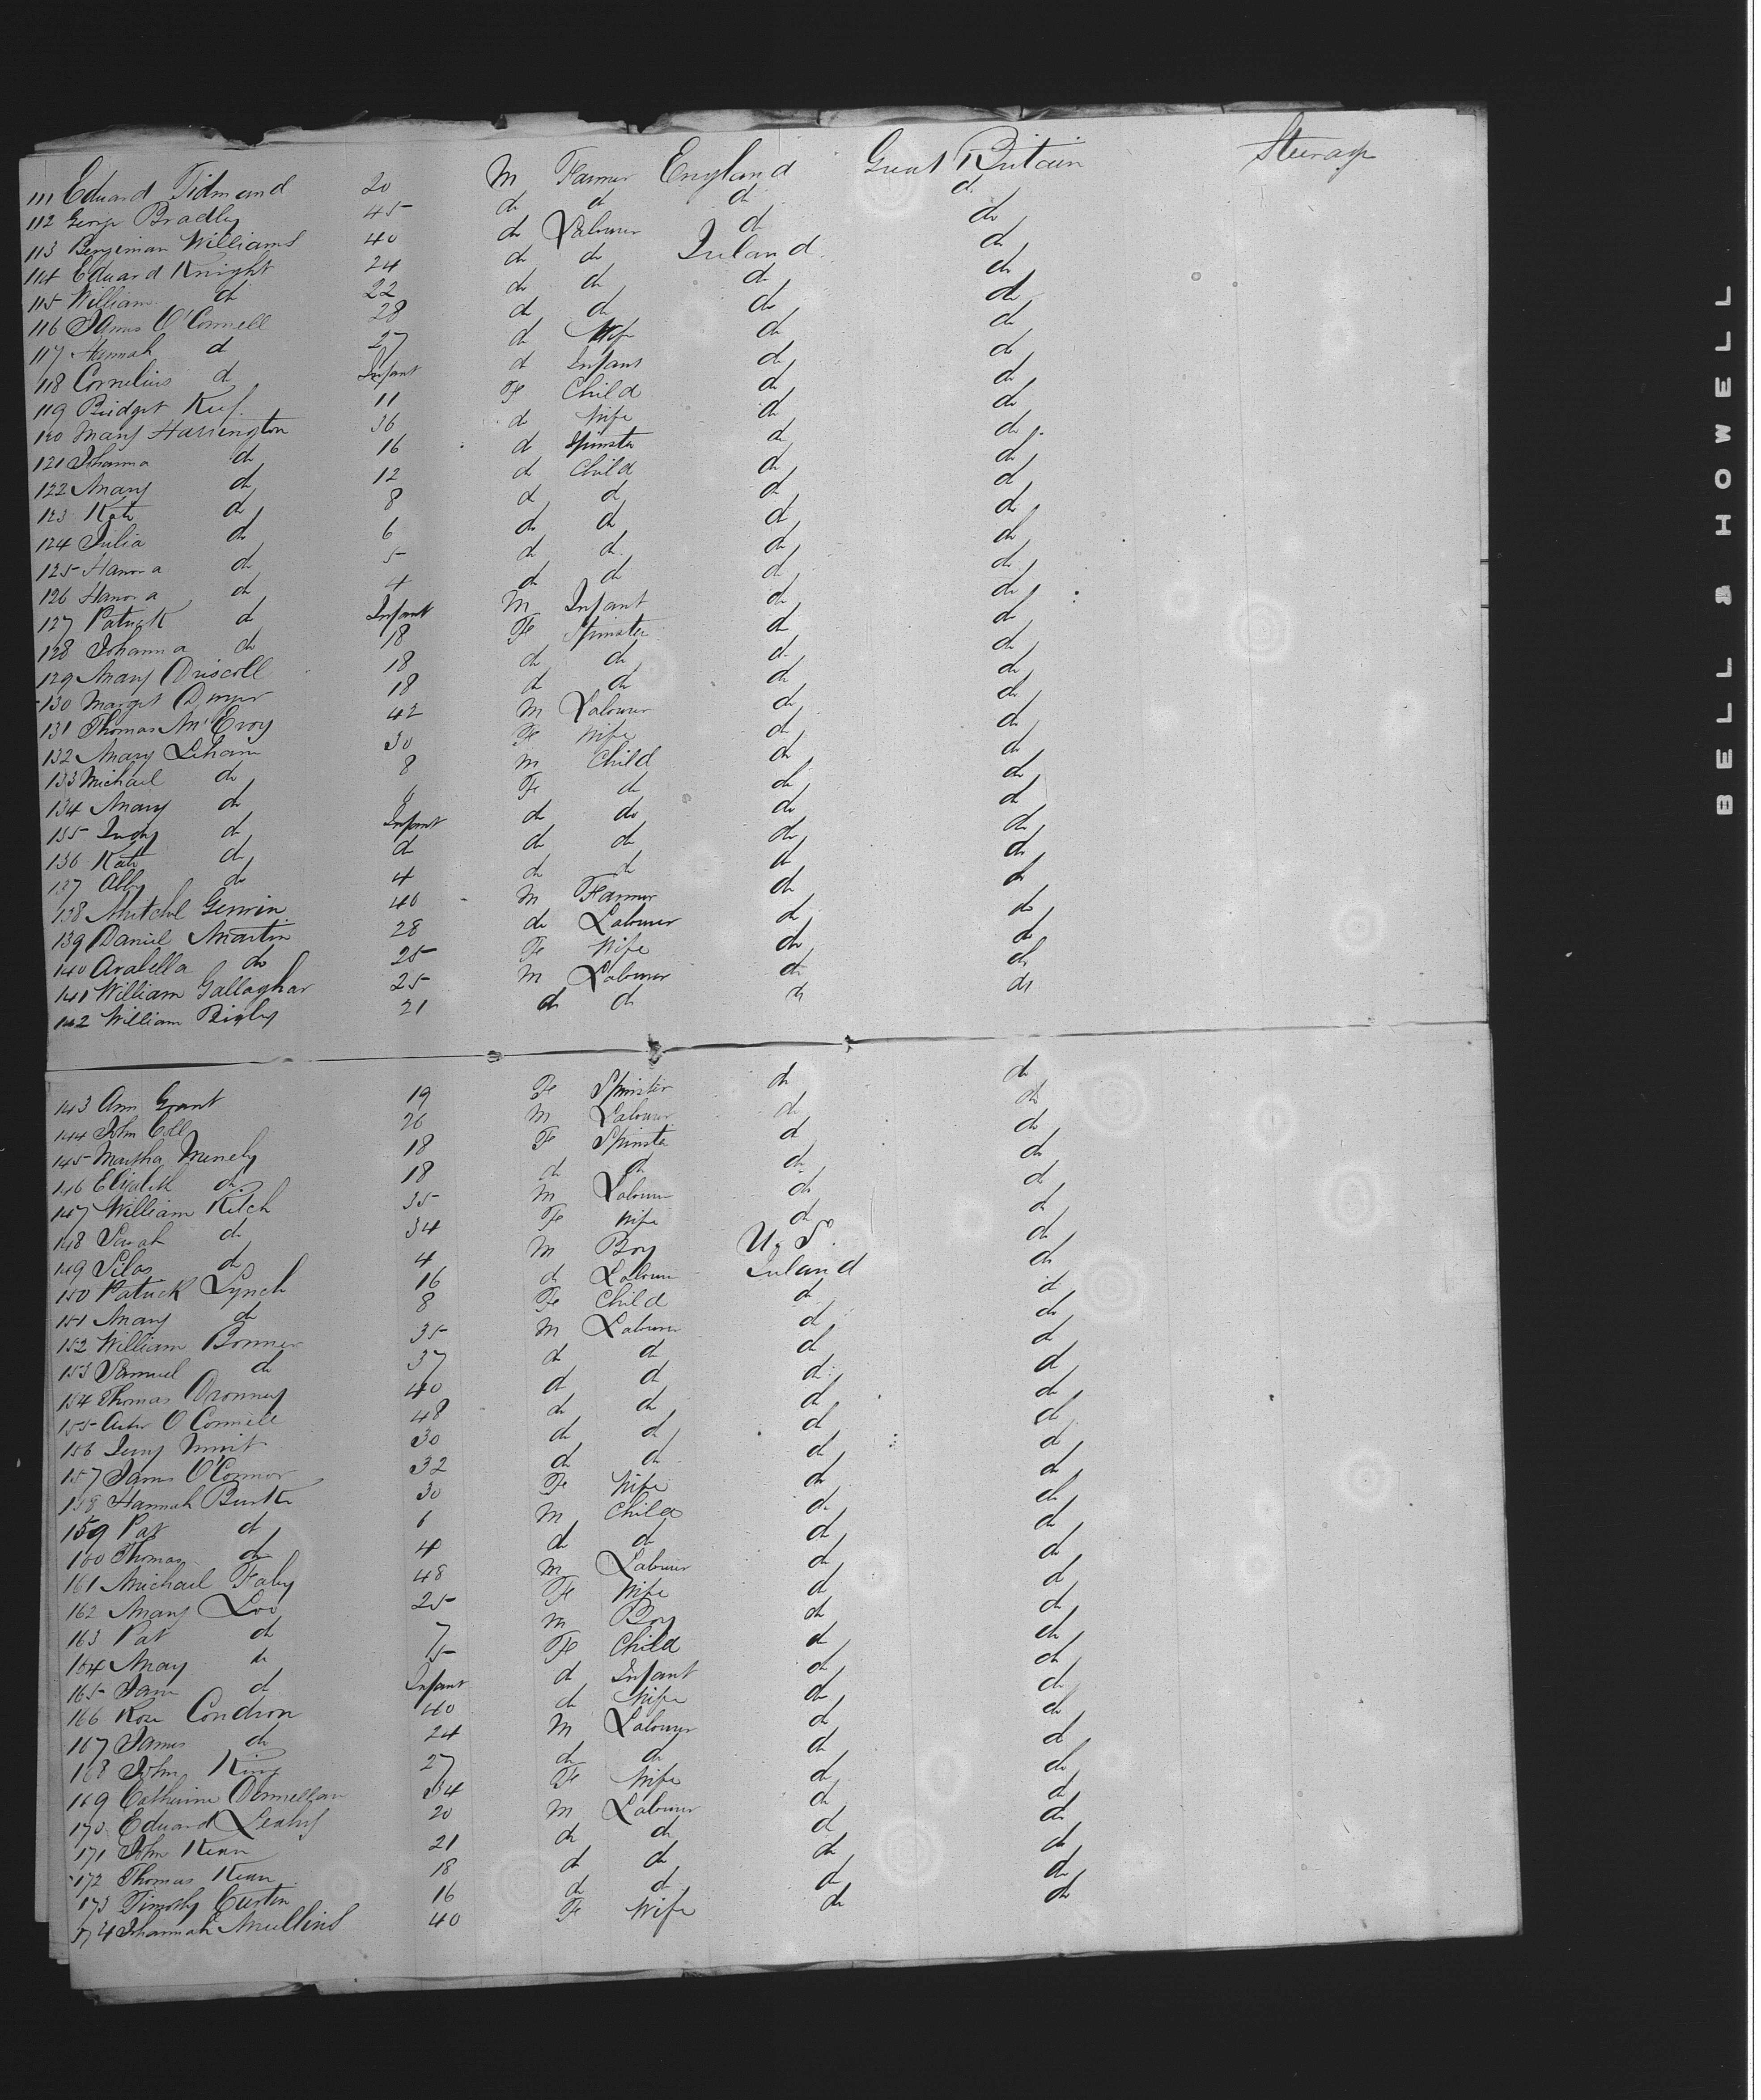 111 Eduard Tidmand 20 M Farmer England Great Britain Steerage
112 George Bradley 45 do do do do
113 Bengiman Williams 40 do Labourer do do
114 Eduard Knight 24 do do Ireland do
115 William do 22 do do do do
116 James O'Connell 28 do do do do
117 Hannah do 27 do Wife do do
118 Cornelius do Infant do Infant do do
119 Bridget Keef 11 Fe Child do do
120 Mary Harrington 36 do Wife do do
121 Johanna do 16 do Spinster do do
122 Mary do 12 do Child do do
123 Kate do 8 do do do do
124 Julia do 6 do do do do
125 Hanora do 5 do do do do
126 Hanora do 4 do do do do
127 Patrick do Infant M Infant do do
128 Johanna do 18 Fe Spinster do do
129 Mary Driscoll 18 do do do do
130 Margret Dwyer 18 do do do do
131 Thomas McEvoy 42 M Labourer do do
132 Mary Lehane 30 Fe Wife do do
133 Michael do 8 M Child do do
134 Mary do Fe do do do
135 Judy do Infant do do do do
136 Kate do do do do do do
137 Abby do 4 do do do do
138 Mitchel Gerwin 40 M Farmer do do
139 Daniel Martin 28 do Labourer do do
140 Arabella do 25 Fe Wife do do
141 William Gallaghar 25 M Labourer do do
142 William Bigley 21 do do do do
143 Ann Grant 19 Fe Spinster do do
144 John Coll 26 M Labourer do do
145 Martha Menely 18 Fe Spinster do do
146 Elizabeth do 18 do do do do
147 William Kitch 35 M Labourer do do
148 Sarah do 34 Fe Wife do do
149 Silas do 4 M Boy U. S. do
150 Patrick Lynch 16 do Labourer Ireland do
151 Mary do 8 Fe Child do do
152 William Bonner 35 M Labourer do do
153 Samuel do 37 do do do do
154 Thomas Dronney 40 do do do do
155 O Connell 48 do do do do
156 30 do do do do
157 James O'Connor 32 do do do do
158 Hannah Burke 30 Fe Wife do do
159 Pat do 6 M Child do do
160 Thomas do 4 do do do do
161 Michael Fahy 48 M Labourer do do
162 Mary 25 Fe Wife do do
163 Pat do 7 M Boy do do
164 Mary do 5 Fe Child do do
165 Jane do Infant do Infant do do
166 Rose Condron 40 do Wife do do
167 James do 24 M Labourer do do
168 John King 27 do do do do
169 Catherine Donnellan 34 Fe Wife do do
170 Eduard Leahy 20 M Labourer do do
171 John Kean 21 do do do do
172 Thomas Kean 18 do do do do
173 Timothy Curtin 16 do do do do
174 Johannah Mullins 40 Fe Wife do do
BELL & HOWELL